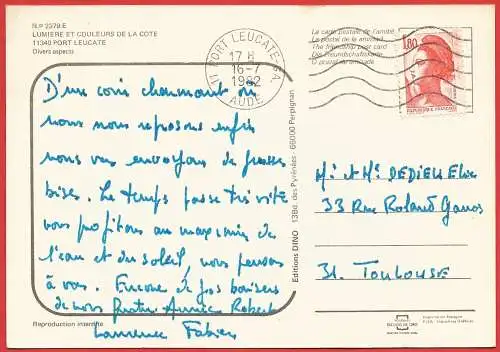 N.º 2379.E
LUMIERE ET COULEURS DE LA COTE
11340 PORT LEUCATE
Divers aspects
D'un coin charmant où
nous nous reposons enfin
nous vous envoyons de grosses
bises. Le temps passe très vite
nous profitons au maximum de
l'eau et du soleil, nous pensons
à vous. Encore de gos baisers
de nous quatre. Annie Robert
Laurence Fabien
Reproduction interdite
Editions DINO 13Bd. des Pyrénées - 66000 Perpignan
11 PORT LEUCATE P.A.
17 H
16-7
1982
AUDE
La carte postale de l'amitié
La postal de la amistad
The friendship post card
Die Freundschaftskarte
O postal da amizade
1,80
REPUBLIQUE FRANÇAISE
Mr et Me DEDIEU Elie
33 Rue Roland Garros
31. TOULOUSE